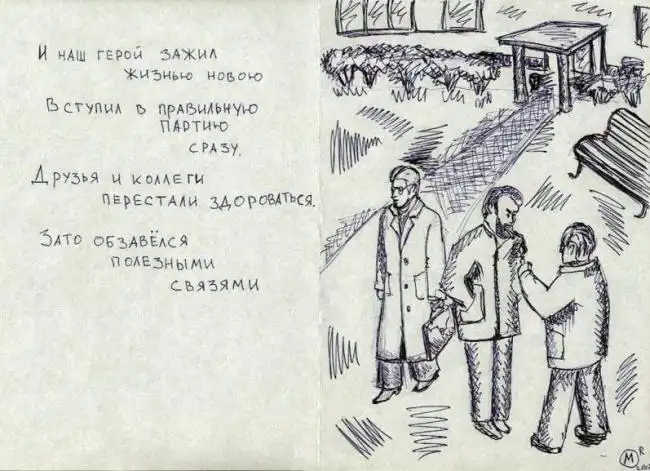 И НАШ ГЕРОЙ ЗАЖИЛ
ЖИЗНЬЮ НОВОЮ
ВСТУПИЛ В ПРАВИЛЬНУЮ
ПАРТИЮ
СРАЗУ.
ДРУЗЬЯ И КОЛЛЕГИ
ПЕРЕСТАЛИ ЗДОРОВАТЬСЯ.
ЗАТО ОБЗАВЁЛСЯ
ПОЛЕЗНЫМИ
СВЯЗЯМИ
M R